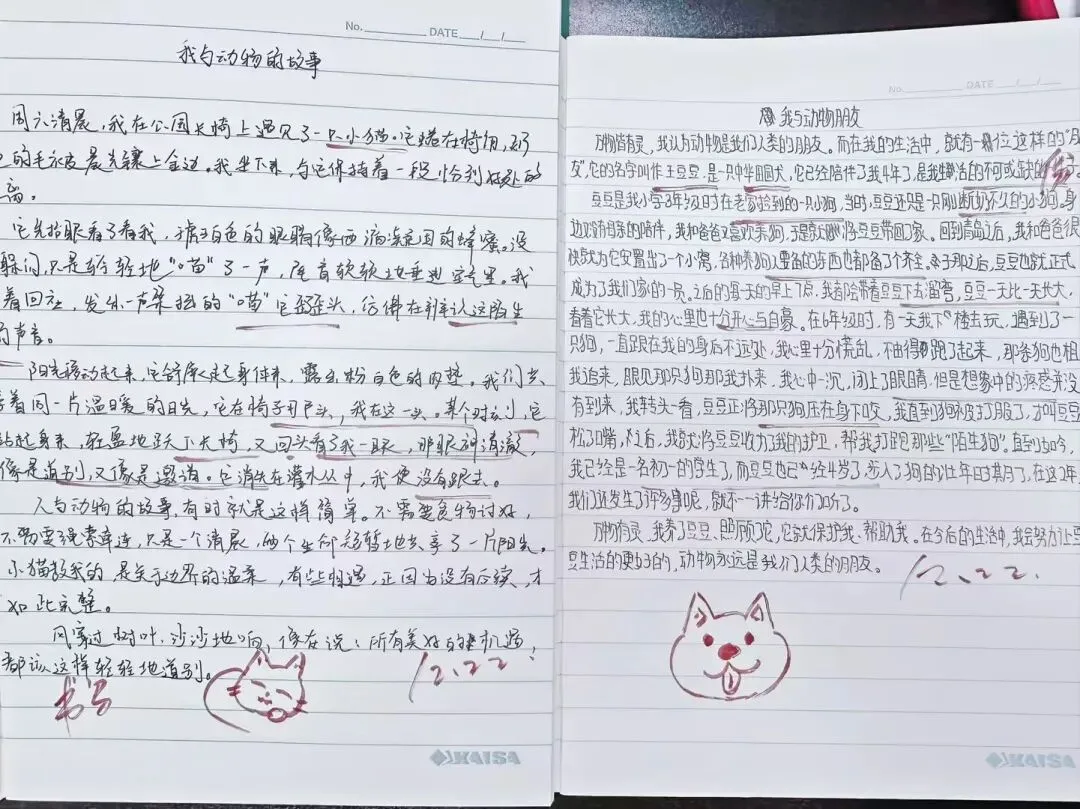 No. DATE / /
我与动物的故事
周六清晨,我在公园长椅上遇见了一只小猫。它蜷在椅角,
的毛被晨光镶上金边。我坐下来,与它保持着一段恰到好处的
离。
它先抬眼看了看我,琥珀色的眼睛像两滴凝固的蜂蜜。没
躲闪,只是轻轻地“喵”了一声,尾音软软地垂进空气里。我
着回应,发出一声 的“喵”它歪头,仿佛在辨认这陌生
的声音。
阳光移动起来,它舒展起身体来,露出粉白色的肉垫。我们共
享着同一片温暖的日光,它在椅子那头,我在这一头。某个时刻,它
站起身来,轻盈地跃下长椅,又回头看了我一眼,那眼神清澈,
像是道别,又像是邀请。它消失在灌木丛中,我便没有跟去。
人与动物的故事,有时就是这样简单。不需要食物讨好,
不需要绳索牵连,只是一个清晨,两个生命短暂地共享了一片阳光。
小猫教我的是关于边界的温柔,有些相遇,正因为没有后续,才
如此完整。
风穿过树叶,沙沙地响,像在说:所有美好的机遇,
都该这样轻轻地道别。
书写
12.22
KAISA
No. DATE / /
我与动物朋友
万物皆有灵,我认为动物是我们人类的朋友。而在我的生活中,就有一位这样的“朋
友”,它的名字叫作王豆豆,是一只中华田园犬,它已经陪伴了我4年了,是我生活的不可或缺的
豆豆是我小学3年级时在老家捡到的一只小狗,当时,豆豆还只是一只刚断奶不久的小狗,身
边没有母亲的陪伴,我和爸爸又喜欢养狗,于是就 将豆豆带回了家。回到青岛之后,我和爸爸很
快就为它安置出了一个小窝,各种养狗人要备的东西也都备了个齐全。于那之后,豆豆也就正式
成为了我们家的一员。之后的每一天的早上7点,我都会带着豆豆下去溜弯,豆豆一天比一天长大,
看着它长大,我的心里也十分开心与自豪。在6年级时,有一天我下楼去玩,遇到了一
只狗,一直跟在我的身后不远处,我心里十分慌乱,不由得跑了起来,那条狗也
我追来,眼见那只狗那我扑来,我心中一沉,闭上了眼睛,但是想象中的疼感并没
有到来,我转头一看,豆豆正将那只狗压在身下咬,我直到狗被打服了,才叫豆豆
松了嘴,之后,我就将豆豆收为了我的护卫,帮我打跑那些“陌生狗”。直到如今,
我已经是一名初一的学生了,而豆豆也已经4岁了,步入了狗的壮年时期了,在这2年
我们还发生了许多事呢,就不一一讲给你们听了。
万物有灵,我养了豆豆、照顾它,它就保护我、帮助我。在今后的生活中,我会努力让豆
豆生活的更好的,动物永远是我们人类的朋友。
12.22.
KAISA